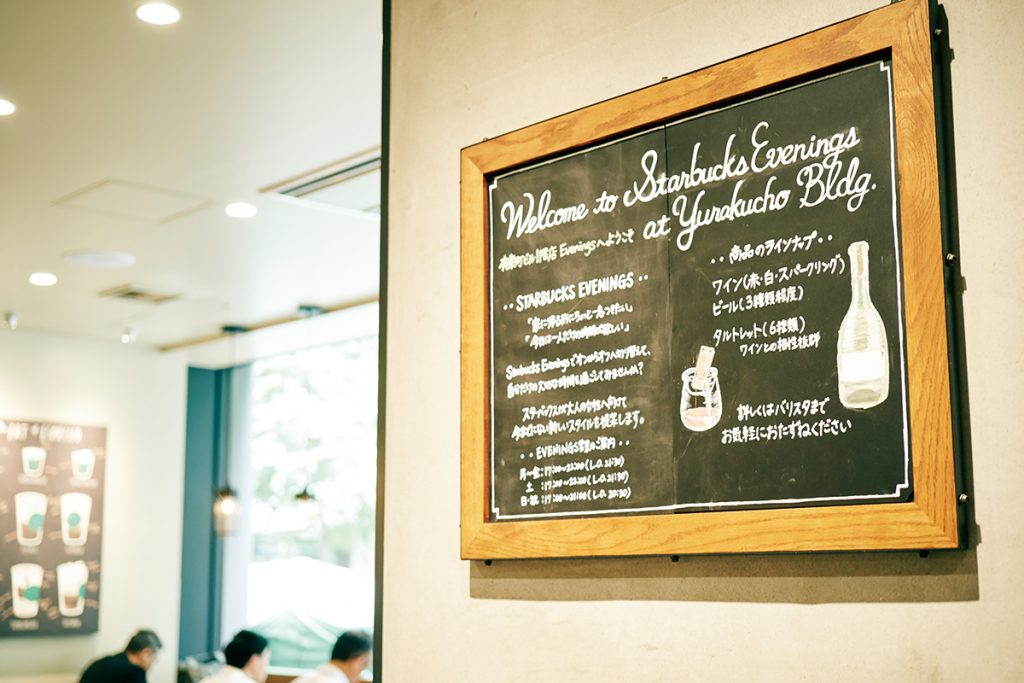 Welcome to Starbucks Evenings
at Yurakucho Bldg.
有楽町ビル1階店 Eveningsへようこそ
・・STARBUCKS EVENINGS・・
「家に帰る前にちょっと一息つきたい」
「今日は一人だけの時間が欲しい」
Starbucks Eveningsでオンからオフへ切り替えて、
自分だけの大切な時間を過ごしてみませんか?
スターバックスが大人の女性へ向けて
今までにない新しいスタイルを提案します。
・・EVENINGS営業のご案内・・
月〜金:17:00〜22:00(L.O. 21:30)
土:17:00〜22:00(L.O. 21:30)
日・祝:17:00〜21:00(L.O. 20:30)
・・商品のラインナップ・・
ワイン(赤・白・スパークリング)
ビール(3種類程度)
タルトレット(6種類)
ワインとの相性抜群
詳しくはバリスタまで
お気軽におたずねください